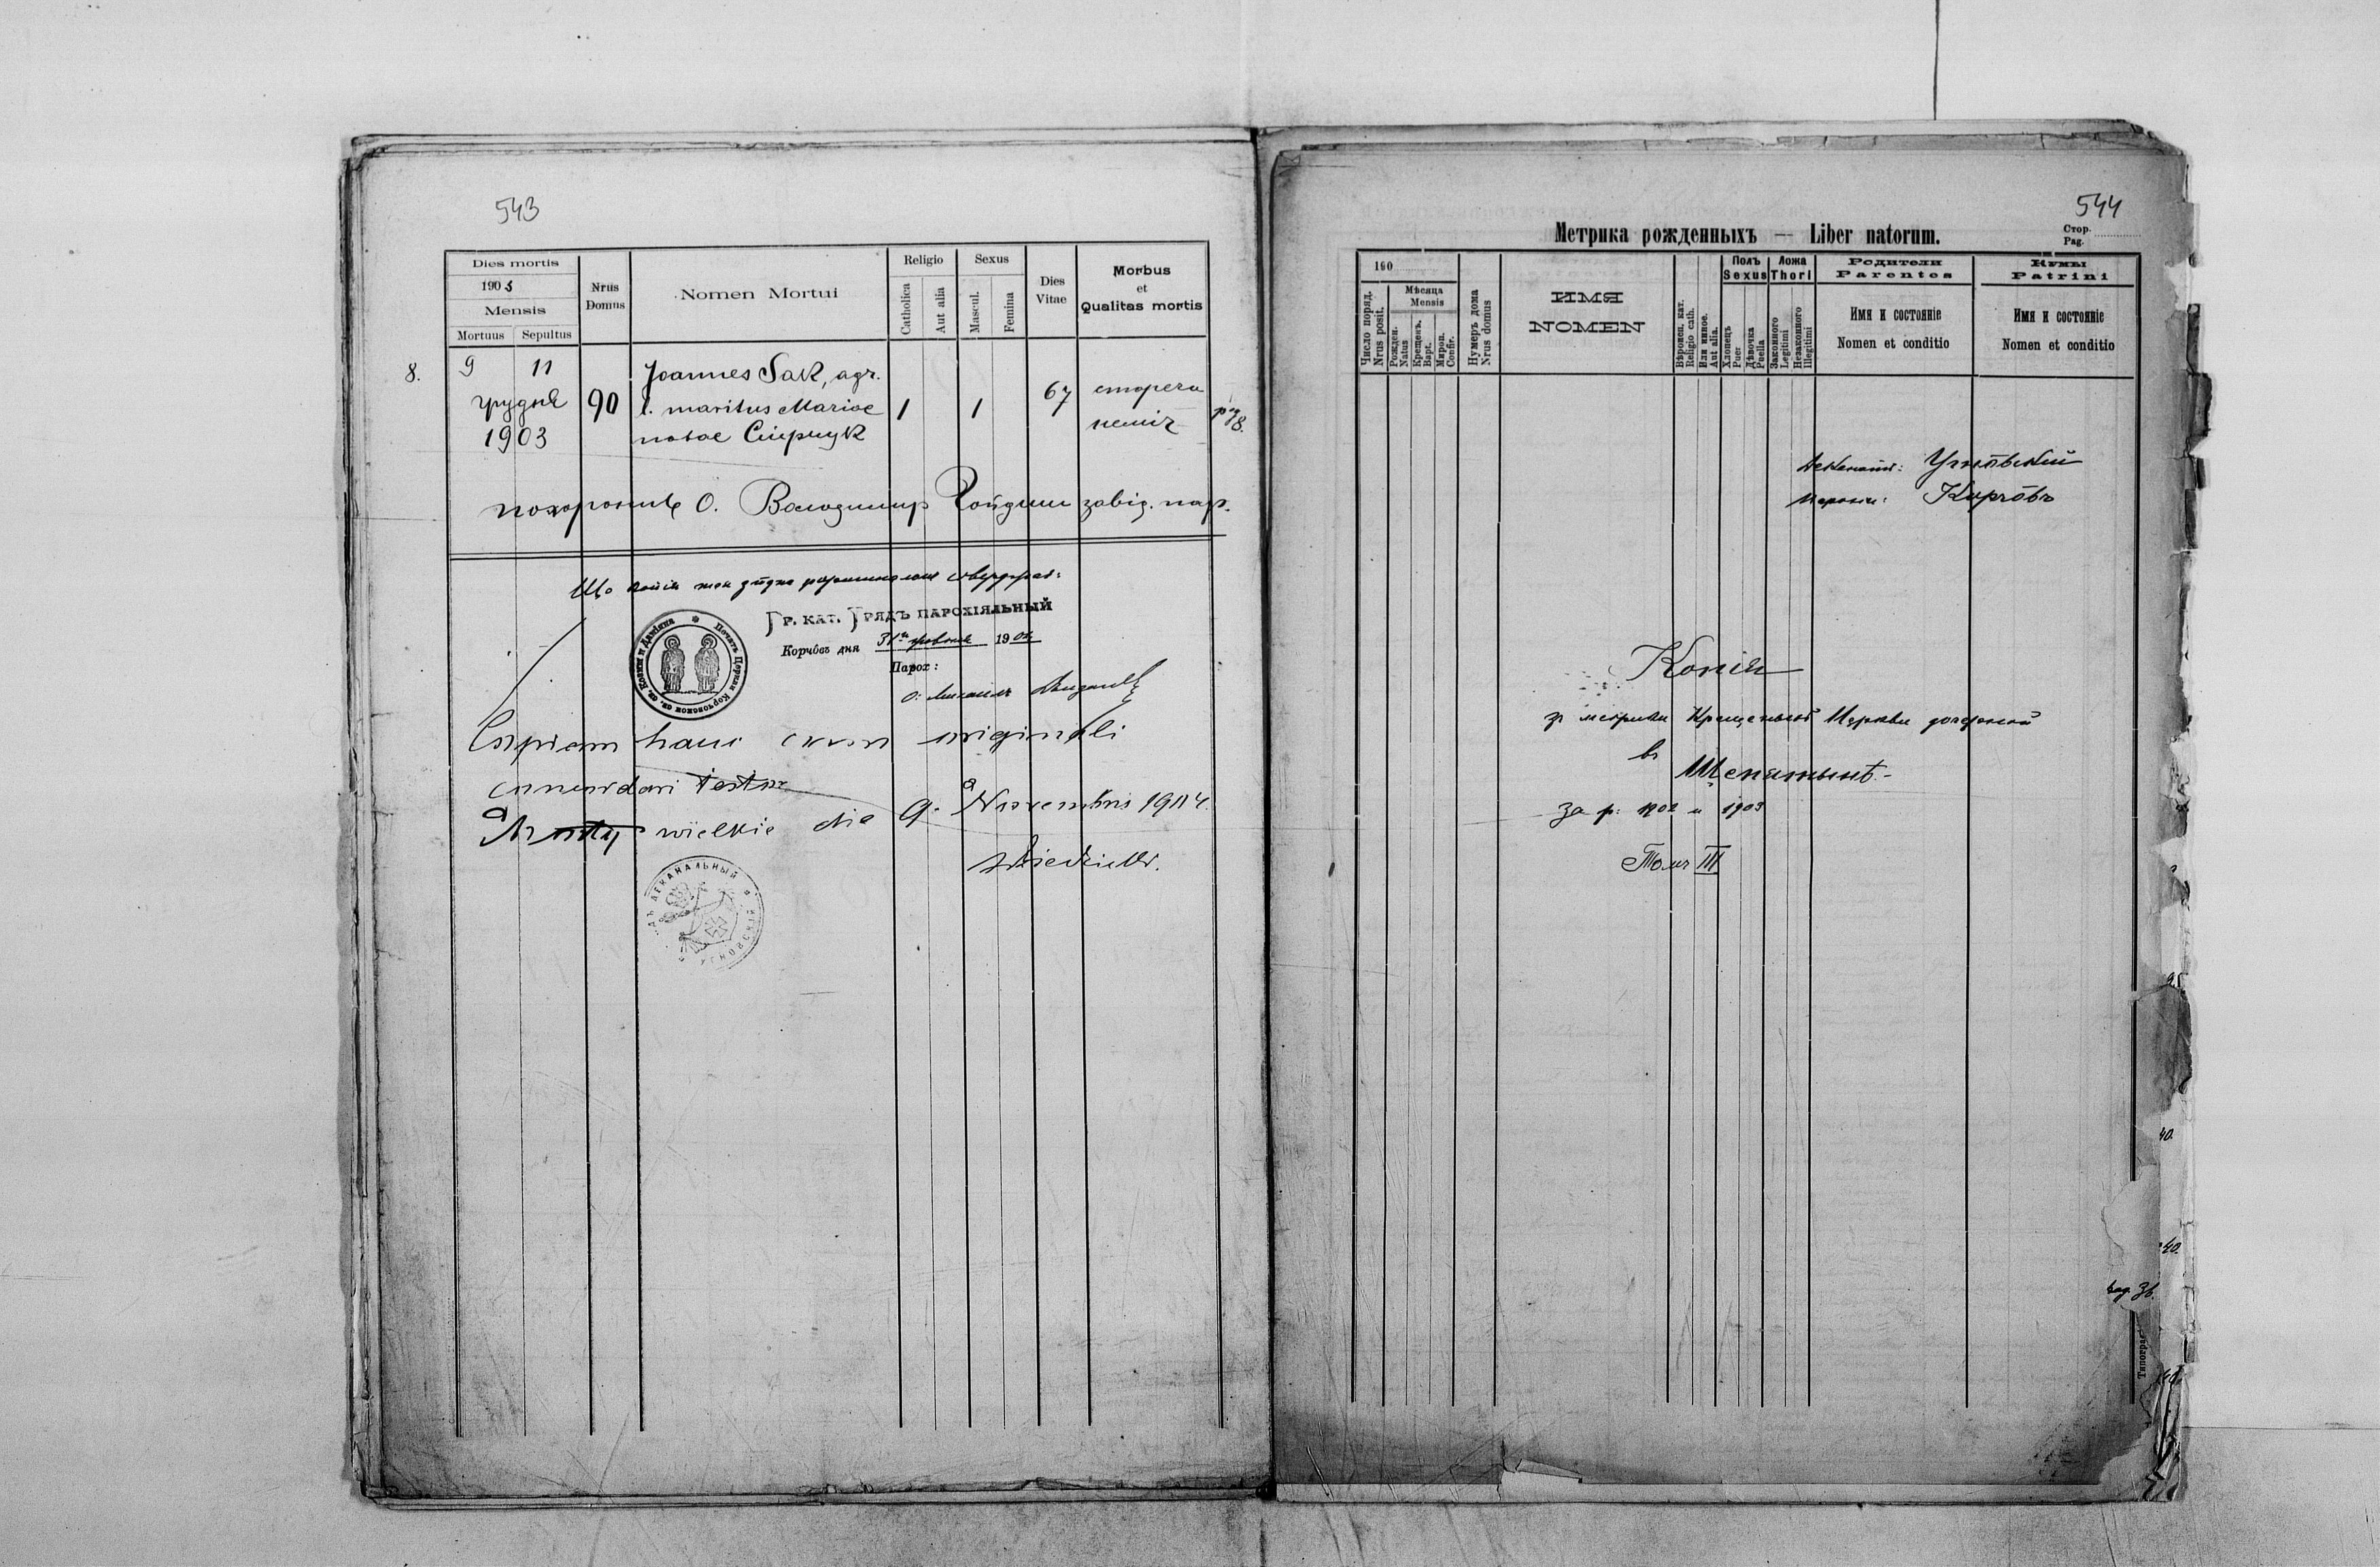 543
Dies mortis
1903
Mensis
Mortuus Sepultus
Nrus Domus
Nomen Mortui
Religio
Catholica
Aut alia
Sexus
Mascul.
Femina
Dies Vitae
Morbus
et
Qualitas mortis
8.
9 11
грудня
1903
90
Joannes Sak, agr.
l. maritus Mariae
natae
1
1
67
стареча
неміч
8.
похоронив О. Володимир завід. пар.
ГР. КАТ. УРЯДЪ ПАРОХІЯЛЬНЫЙ
Корчôвъ дня 31 1904
Парох:
о. Михаилъ
Печать Церкви Корчовской св. св. Козмы и Даміяна
Copiam hanc cum originali
concordari testor
Mosty wielkie die 9. Novembris 1904.
ДЕКАНАЛЬНЫЙ
544
Метрика рожденныхъ — Liber natorum.
Стор.
Pag.
190
Число поряд.
Nrus posit.
Мѣсяца
Mensis
Рожден.
Natus
Крещенъ.
Bapt.
Мироп.
Confir.
Нумеръ дома
Nrus domus
ИМЯ
NOMEN
Вѣроисп. кат.
Religio cath.
Или инное.
Aut alia.
Полъ
Sexus
Хлопецъ
Puer
Дѣвочка
Puella
Ложа
Thori
Законного
Legitimi
Незаконного
Illegitimi
Родители
Parentes
Имя и состояніе
Nomen et conditio
Кумы
Patrini
Имя и состояніе
Nomen et conditio
Деканатъ: Угнôвскій
Парохія: Корчôвъ
Копія
зъ метрики Крещеныхъ Церкви дочерной
въ
Щепятынѣ.
за р. 1902 и 1903
Томъ III
40.
40.
Типограф